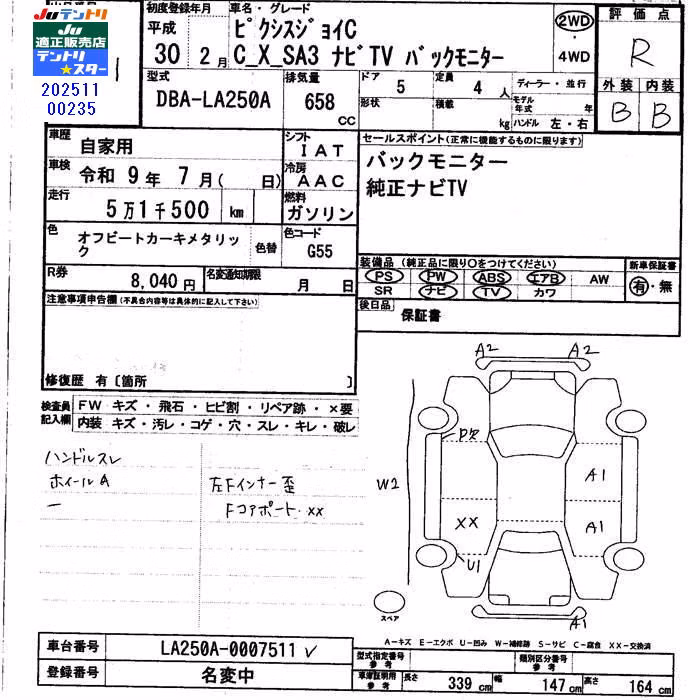 Juテントリ
Ju
適正販売店
テントリ
★スター
202511
00235
初度登録年月
平成
30 2月
車名・グレード
ピクシスジョイC
C_X_SA3 ナビTV バックモニター
2WD
・
4WD
評価点
R
外装 内装
B B
型式
DBA-LA250A
排気量
658
cc
ドア
5
定員
4人
ディーラー・並行
形状
積載
kg
モデル年式 年
ハンドル 左・右
車歴
自家用
シフト
IAT
車検
令和 9年 7月( 日)
冷房
AAC
走行
5万1千500 km
燃料
ガソリン
色
オフビートカーキメタリック
色替
色コード
G55
R券
8,040円
名変通知期限
月 日
セールスポイント(正常に機能するものに限ります)
バックモニター
純正ナビTV
装備品 (純正品に限り○をつけてください)
PS PW ABS エアB AW
SR ナビ TV カワ
新車保証書
有・無
後日品
保証書
注意事項申告欄(不具合内容等は具体的に記入して下さい)
修復歴 有〔箇所 〕
検査員記入欄
FW キズ・飛石・ヒビ割・リペア跡・×要
内装 キズ・汚レ・コゲ・穴・スレ・キレ・破レ
ハンドルスレ
ホイールA
左Fインナー歪
Fコアポート××
A2 A2
W2
A1
XX
A1
U1
A1
スペア
A-キズ E-エクボ U-凹み W-補修跡 S-サビ C-腐食 XX-交換済
車台番号
LA250A-0007511
登録番号
名変中
型式指定番号
参考
類別区分番号
参考
車庫証明用
参考
長さ 339cm 幅 147cm 高さ 164cm